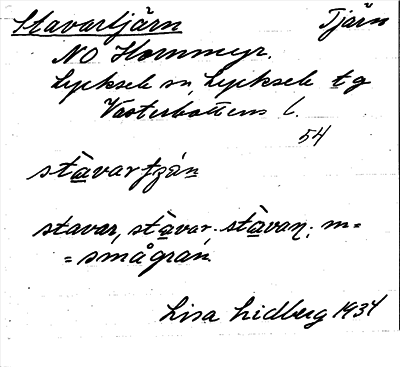 Stavartjärn Tjärn
NO Hornmyr.
Lycksele sn, Lycksele tg
Västerbottens l.
54
stàvartʒán
stavar, stàvar. stàvan; m=
= smågran
Lisa Lidberg 1934